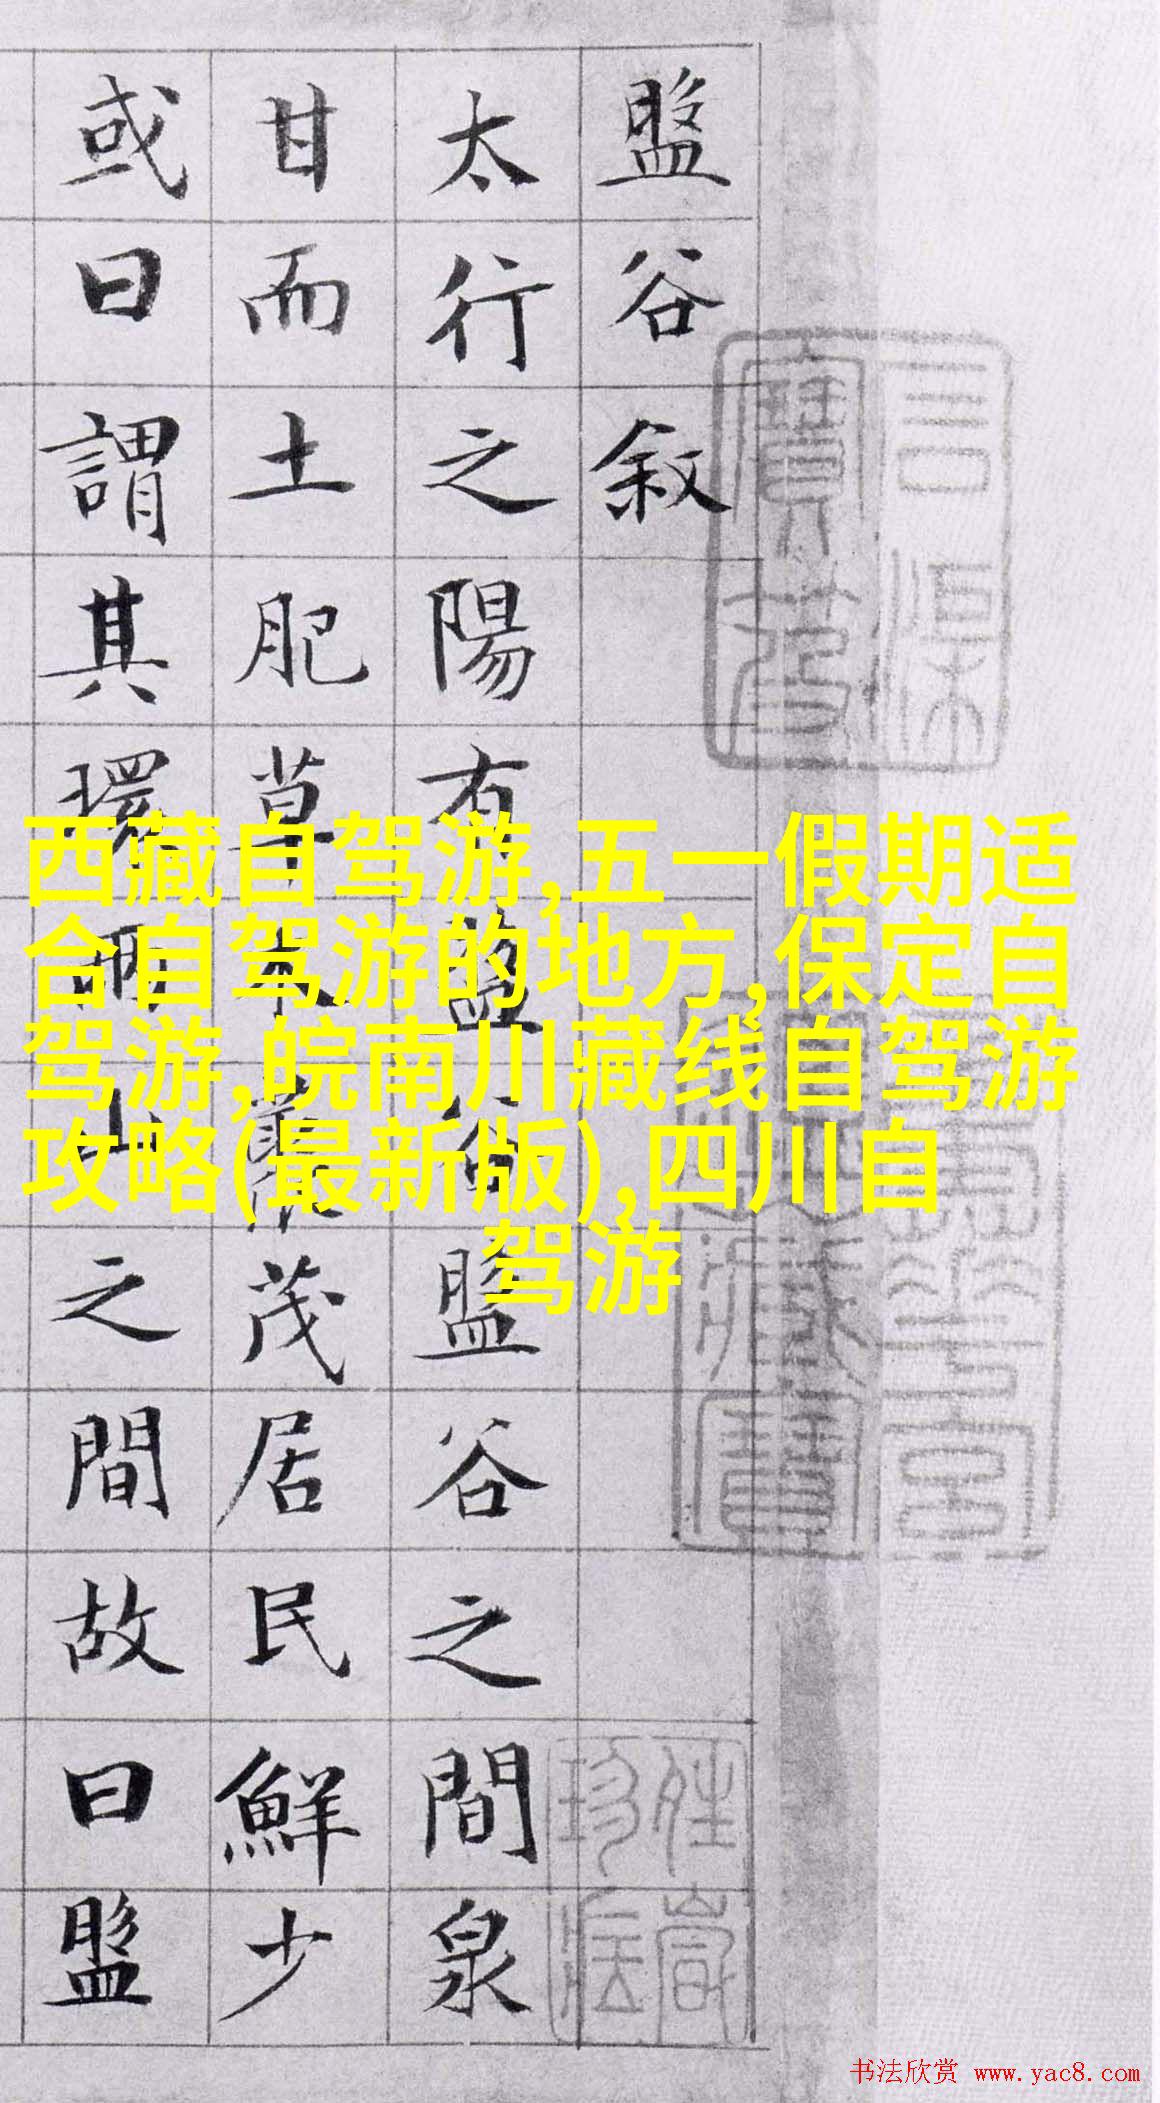 盤谷敘
太行之陽有盤谷盤谷之間泉
甘而土肥草木叢茂居民鮮少
或曰謂其環兩山之間故曰盤
西藏自驾游,五一假期适
合自驾游的地方,保定自
驾游,皖南川藏线自驾游
攻略(最新版),四川自
驾游
书法欣赏 www.yac8.com